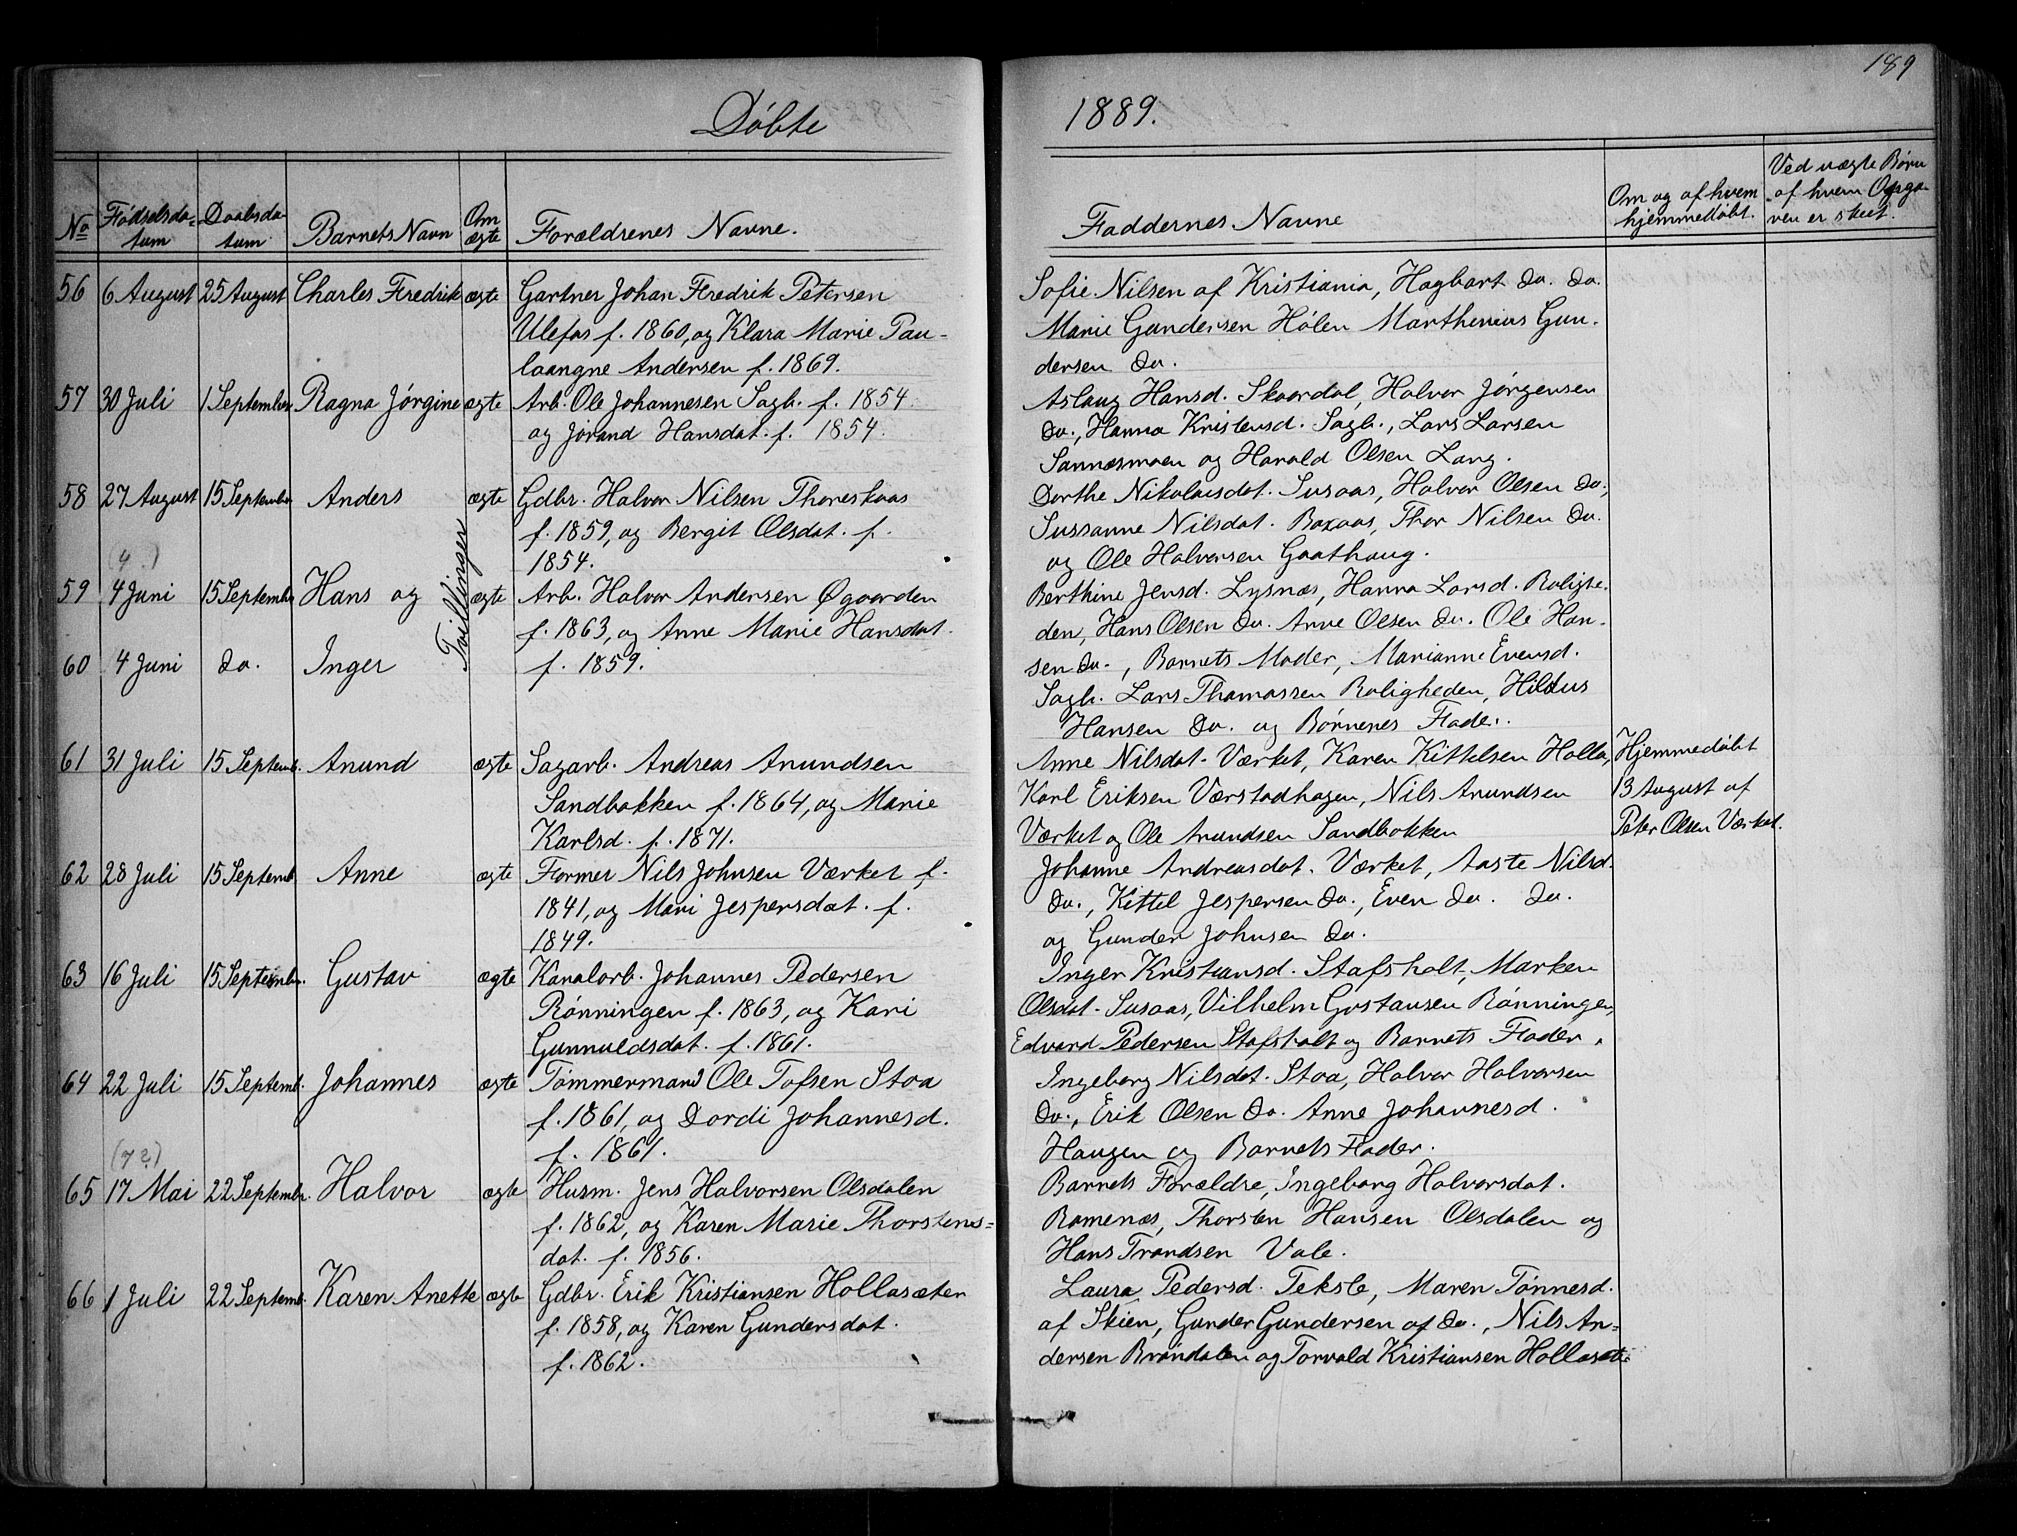 189
Døbte 1889.
No Fødselsdatum Daabsdatum Barnets Navn Om ægte Forældrenes Navne. Faddernes Navne Om og af hvem hjemmedøbt. Ved uægte Børn af hvem Opgaven er skeet.
56 6 August 25 August Charles Fredrik ægte Gartner Johan Fredrik Petersen
Ulefos f. 1860, og Klara Marie Pau-
laangne Andersen f. 1869.
Sofie Nilsen af Kristiania, Hagbart Do. Do.
Marie Gundersen Hølen Marthenius Gun-
dersen Do.
57 30 Juli 1 September Ragna Jørgine ægte Arb. Ole Johannesen Sagb. f. 1854
og Jørand Hansdat. f. 1854.
Aslaug Hansd. Skaardal, Halvor Jørgensen
Do., Hanna Kristensd. Sagb., Lars Larsen
Sannæsmoen og Harald Olsen Lang.
58 27 August 15 September Anders ægte Gdbr. Halvor Nilsen Thoreskaas
f. 1859, og Bergit Olsdat. f.
1854.
Dorthe Nikolaisdat. Susaas, Halvor Olsen Do.,
Sussanne Nilsdat. Baxaas, Thor Nilsen Do.
og Ole Halvorsen Gaathaug.
(4 .)
59 4 Juni 15 Septembr Hans og Tvillinger ægte Arb. Halvor Andersen Øgaarden
f. 1863, og Anne Marie Hansdat.
60 4 Juni do. Inger f. 1859.
Berthine Jensd. Lysnæs, Hanna Larsd. Roligte-
den, Hans Olsen Do. Anne Olsen Do. Ole Han-
sen Do., Barnets Moder, Marianne Evensd.
Sagb. Lars Thomassen Roligheden, Hildus
Hansen Do. og Børnenes Fader.
61 31 Juli 15 Septemb. Anund ægte Sagarb. Andreas Anundsen
Sandbakken f. 1864, og Marie
Karlsd. f. 1871.
Anne Nilsdat. Værket, Karen Kittelsen Holla,
Karl Eriksen Værstadhagen, Nils Anundsen
Værket og Ole Anundsen Sandbakken
Hjemmedøbt
13 August af
Peter Olsen Værket.
62 28 Juli 15 Septemb. Anne ægte Former Nils Johnsen Værket f.
1841, og Mari Jespersdat. f.
1849.
Johanne Andreasdat. Værket, Aaste Nilsd.
Do., Kittel Jespersen Do., Even Do. Do.
og Gunder Johnsen Do.
63 16 Juli 15 Septembr. Gustav ægte Kanalarb. Johannes Pedersen
Rønningen f. 1863, og Kari
Gunnuldsdat. f. 1861.
Inger Kristiansd. Stafsholt, Marken
Olsdat. Susaas, Vilhelm Gustausen Rønningen,
Edvard Pedersen Stafsholt og Barnets Fader.
64 22 Juli 15 Septemb. Johannes ægte Tømmermand Ole Tofsen Stoa
f. 1861, og Dordi Johannesd.
f. 1861.
Ingeborg Nilsdat. Stoa, Halvor Halvorsen
Do., Erik Olsen Do. Anne Johannesd.
Haugen og Barnets Fader.
(7?)
65 17 Mai 22 Septembr. Halvor ægte Husm. Jens Halvorsen Olsdalen
f. 1862, og Karen Marie Thorstens-
dat. f. 1856.
Barnets Forældre, Ingeborg Halvorsdat.
Romenæs, Thorsten Hansen Olsdalen og
Hans Trondsen Vale.
66 1 Juli 22 Septemb. Karen Anette ægte Gdbr. Erik Kristiansen Hollasæter
f. 1858, og Karen Gundersdat.
f. 1862.
Laura Pedersd. Tekste, Maren Tønnesd.
af Skien, Gunder Gundersen af Do., Nils An-
dersen Brøndalen og Torvald Kristiansen Hollasæte